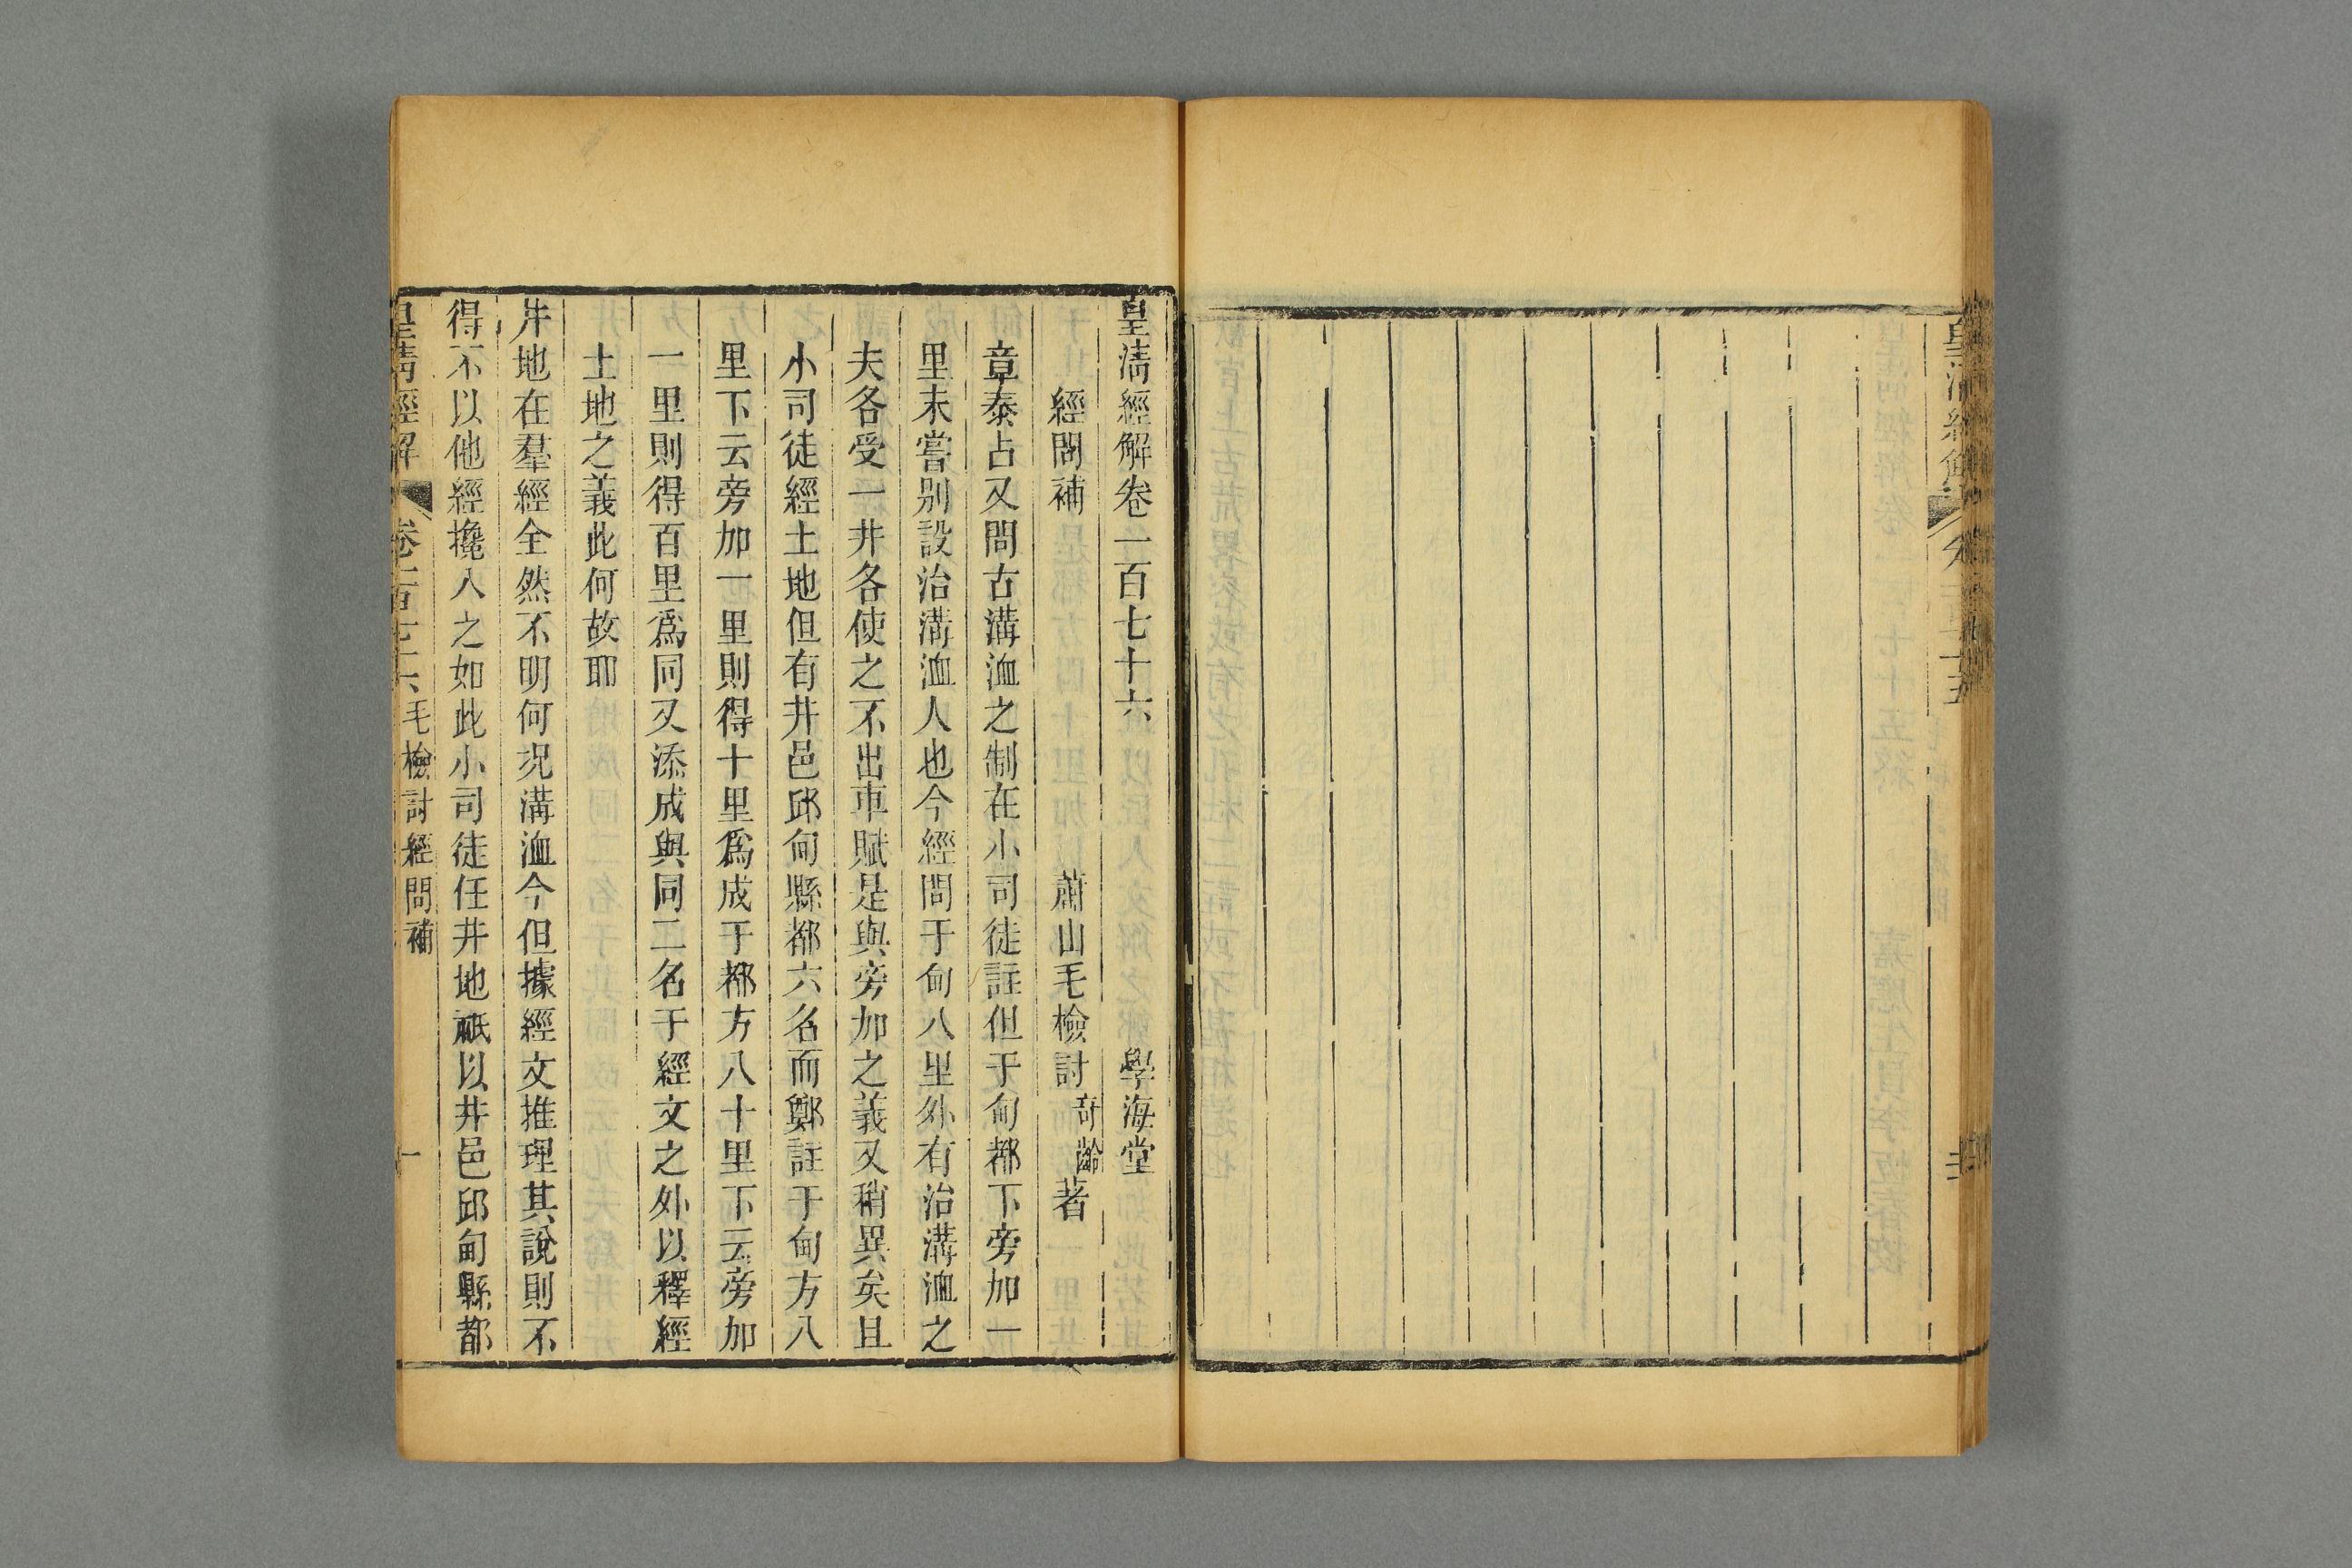 皇清經解卷一百七十六 學海堂
經問補 蕭山毛檢討奇齡著
章泰占又問古溝洫之制在小司徒註但于甸都下旁加一
里未嘗別設治溝洫人也今經問于甸八里外有治溝洫之
夫各受一井各使之不出車賦是與旁加之義又稍異矣且
小司徒經土地但有井邑邱甸縣都六名而鄭註于甸方八
里下云旁加一里則得十里爲成于都方八十里下云旁加
一里則得百里爲同又添成與同二名于經文之外以釋經
土地之義此何故耶
井地在羣經全然不明何况溝洫今但據經文推理其說則不
得不以他經攙入之如此小司徒任井地祇以井邑邱甸縣都
皇清經解 卷一百七十六 毛檢討經問補 一